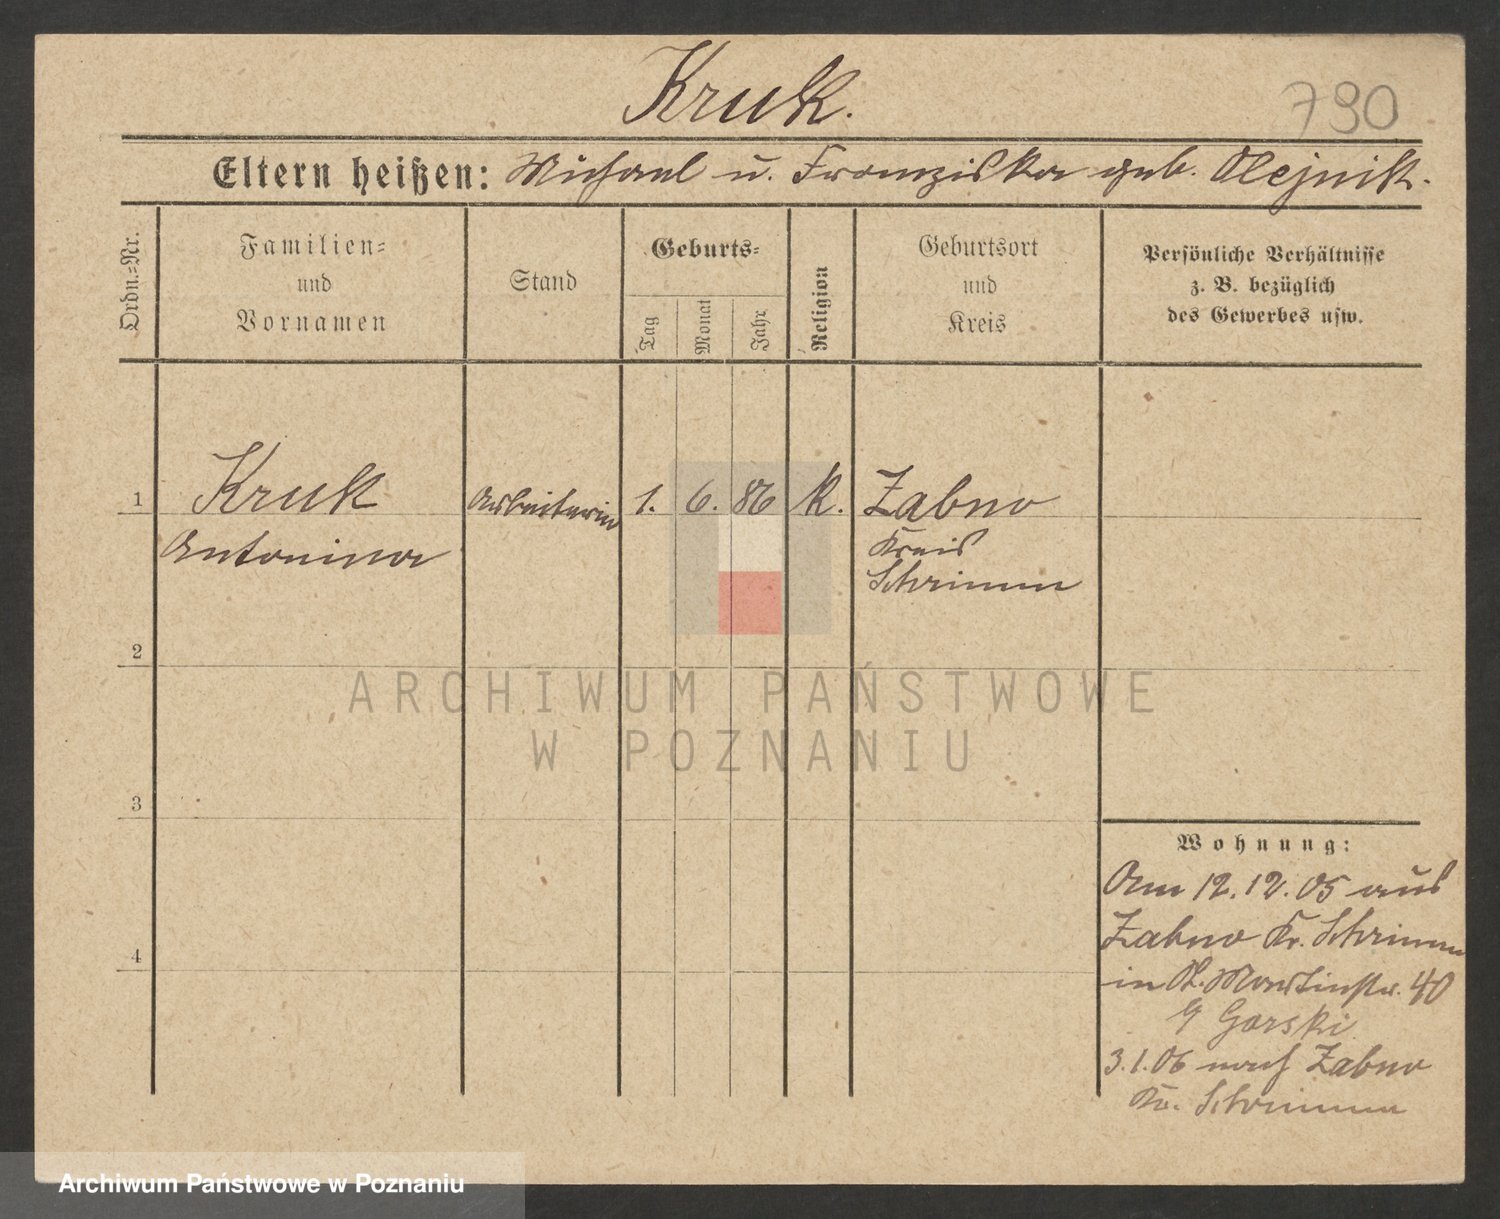 Kruk.
790
Eltern heißen: Michael u. Franziska geb. Olejnik.
Ordn.=Nr.
Familien=
und
Vornamen
Stand
Geburts=
Tag
Monat
Jahr
Religion
Geburtsort
und
Kreis
Persönliche Verhältnisse
z. B. bezüglich
des Gewerbes usw.
1 Kruk Arbeiterin 1. 6. 86 k. Zabno
Antonina Kreis
Schrimm
2
ARCHIWUM PAŃSTWOWE
W POZNANIU
3
4
Wohnung:
Am 12.12.05 aus
Zabno Kr. Schrimm
in St. Martinstr. 40
Gorski
3.1.06 nach Zabno
Kr. Schrimm
Archiwum Państwowe w Poznaniu